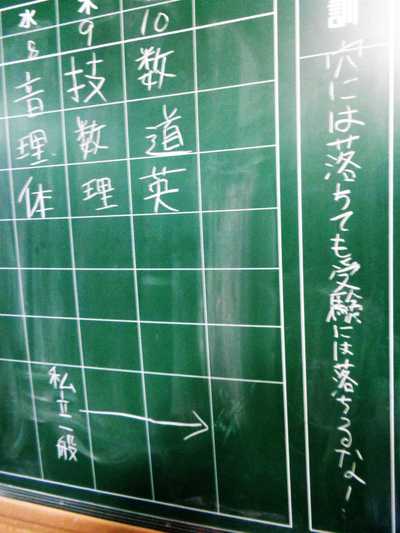 訓
穴には落ちても受験には落ちるな!
水 木
8 9 10
音 技 数
理 数 道
体 理 英
私立一般